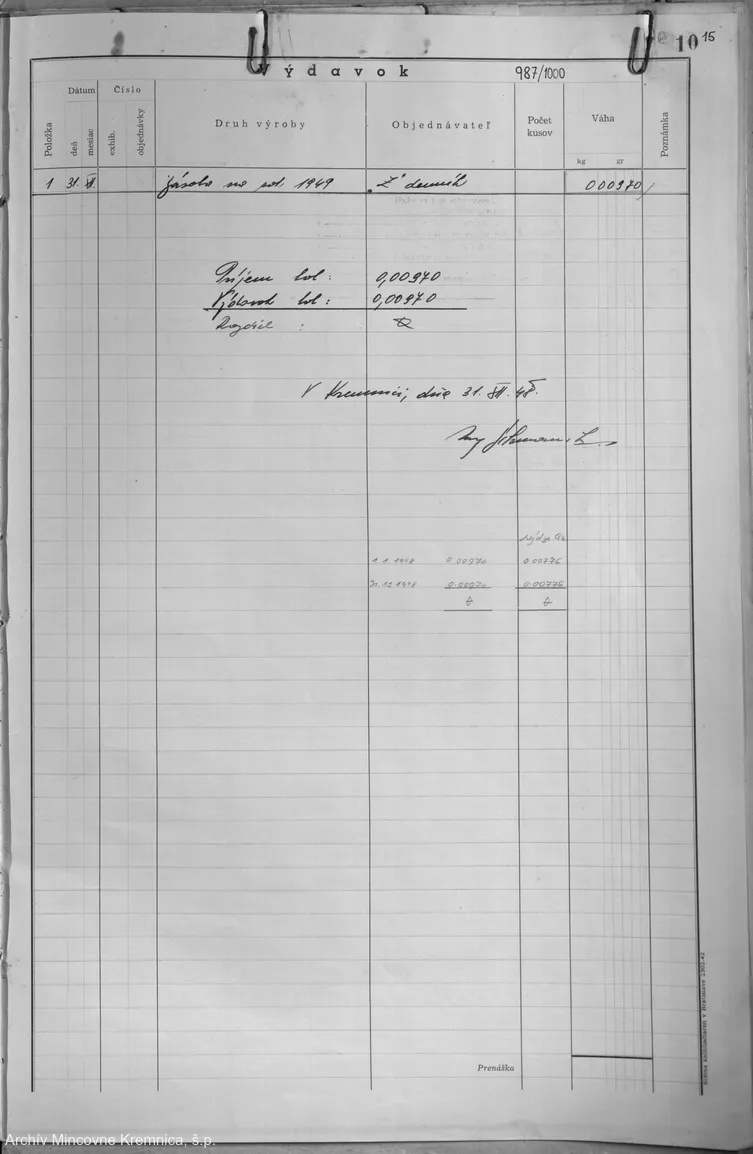 10 15
Výdavok 987/1000
Položka
Dátum
deň
mesiac
Číslo
exhib.
objednávky
Druh výroby
Objednávateľ
Počet kusov
Váha
kg gr
Poznámka
1 31. XII. zásoba na rok 1949 „Z" denník 000970
Príjem bol: 0,00970
Výdavok bol: 0,00970
Rozdiel :
V Kremnici, dňa 31. XII. 48.
1.1.1948 0.00970 0.00776
31.12.1948 0.00970 0.00776
Prenáška
Archív Mincovne Kremnica, š.p.